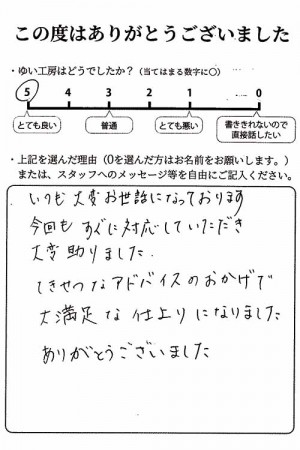 この度はありがとうございました
・ゆい工房はどうでしたか？（当てはまる数字に○）
5 4 3 2 1 0
とても良い 普通 とても悪い 書ききれないので直接話したい
・上記を選んだ理由（0を選んだ方はお名前をお願いします。）
または、スタッフへのメッセージ等を自由にご記入ください。
いつも大変お世話になっております
今回もすぐに対応していただき
大変助りました。
てきせつなアドバイスのおかげで
大満足な仕上りになりました
ありがとうございました